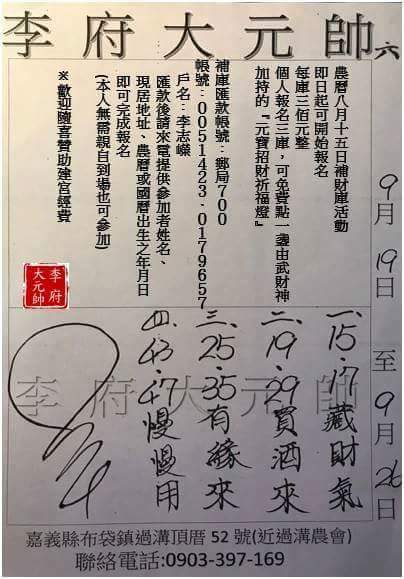 李府大元帥六
農曆八月十五日補財庫活動
即日起可開始報名
每庫三佰元整
個人報名三庫，可免費點一盞由武財神
加持的『元寶招財祈福燈』
補庫匯款帳號：郵局700
帳號：0051423-0179657
戶名：李志嶸
匯款後請來電提供參加者姓名、
現居地址、農曆或國曆出生之年月日
即可完成報名
(本人無需親自到場也可參加)
※歡迎隨喜贊助強宮經費
李府
大元帥
9月19日至9月26日
李府大元帥
一、15.17藏財氣
二、19.29買酒來
三、25.35有緣來
四、43.47慢慢用
嘉義縣布袋鎮過溝頂厝 52 號(近過溝農會)
聯絡電話:0903-397-169